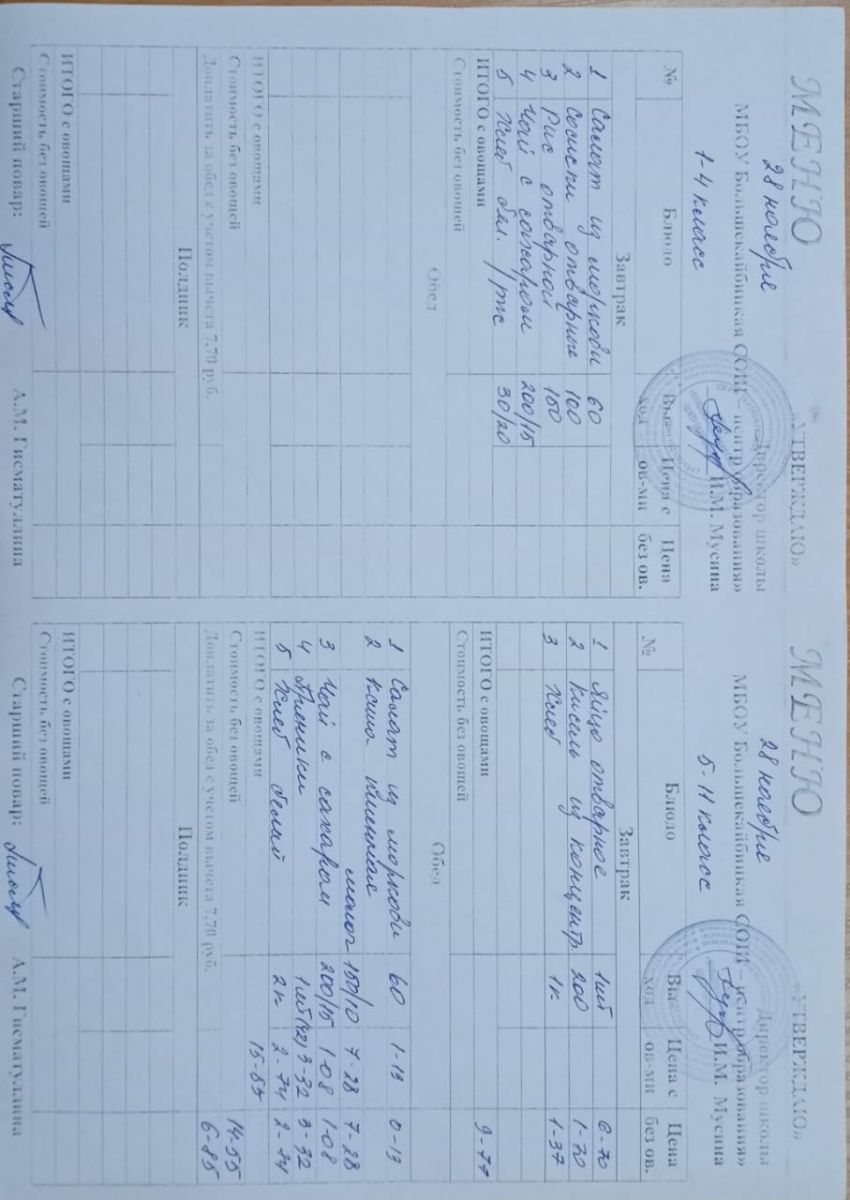 МЕНЮ
«УТВЕРЖДАЮ»
28 ноября
Директор школы
МБОУ Большекайбицкая СОШ – центр образования»
И.М. Мусина
1-4 класс
№ Блюдо Выход Цена с ов-ми Цена без ов.
Завтрак
1 Салат из моркови 60
2 Сосиски отварные 100
3 Рис отварной 150
4 Чай с сахаром 200/15
5 Хлеб бел. /рж 30/20
ИТОГО с овощами
Стоимость без овощей
Обед
ИТОГО с овощами
Стоимость без овощей
Доплатить за обед с учетом вычета 7.70 руб.
Полдник
ИТОГО с овощами
Стоимость без овощей
Старший повар: А.М. Гисматуллина
МЕНЮ
«УТВЕРЖДАЮ»
28 ноября
Директор школы
МБОУ Большекайбицкая СОШ – центр образования»
И.М. Мусина
5-11 класс
№ Блюдо Выход Цена с ов-ми Цена без ов.
Завтрак
1 Яйцо отварное 1шт 6-70
2 Кисель из концентр. 200 1-70
3 Хлеб 1к 1-37
ИТОГО с овощами 9-77
Стоимость без овощей
Обед
1 Салат из моркови 60 1-13 0-13
2 Каша пшенная
молоч 150/10 7-28 7-28
3 Чай с сахаром 200/15 1-08 1-08
4 Пряники 3-32 3-32
5 Хлеб белый 2к 2-74 2-74
ИТОГО с овощами 15-55
Стоимость без овощей 14-55
Доплатить за обед с учетом вычета 7.70 руб. 6-85
Полдник
ИТОГО с овощами
Стоимость без овощей
Старший повар: А.М. Гисматуллина